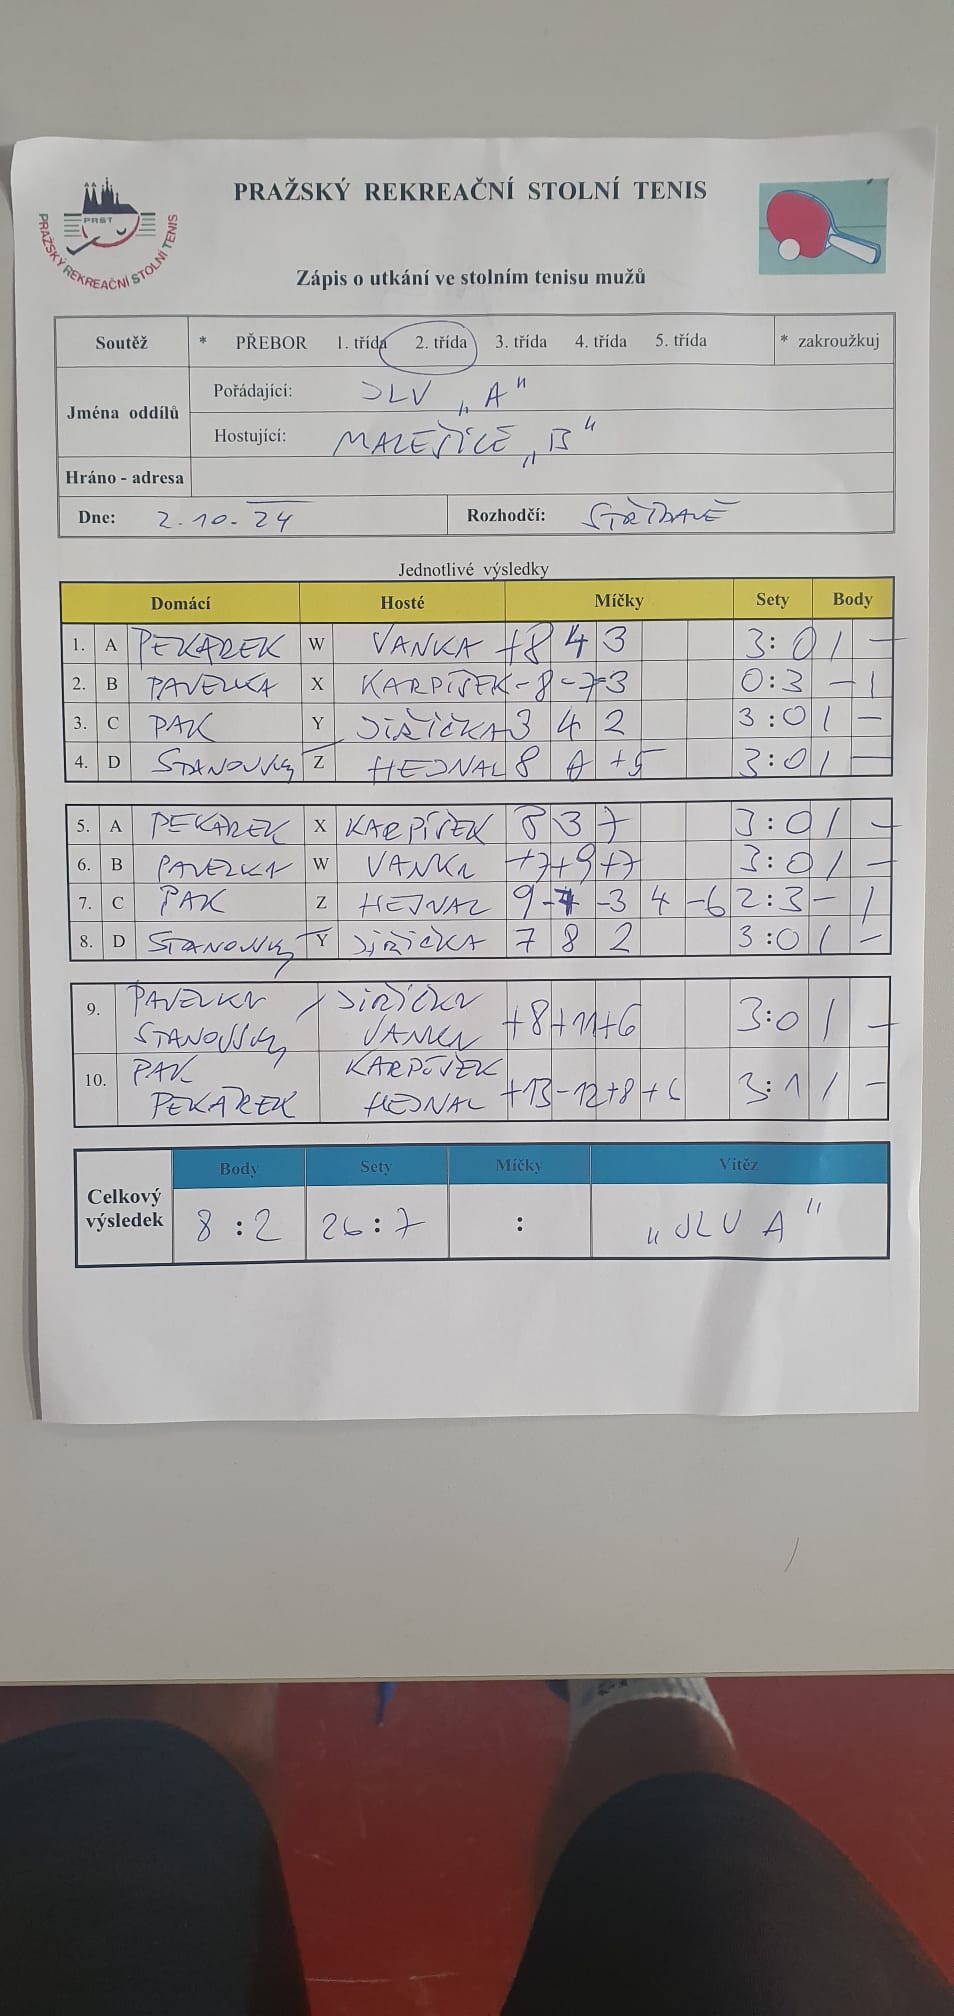 PRAŽSKÝ REKREAČNÍ STOLNÍ TENIS
PRST
PRAŽSKÝ REKREAČNÍ STOLNÍ TENIS
Zápis o utkání ve stolním tenisu mužů
Soutěž * PŘEBOR 1. třída 2. třída 3. třída 4. třída 5. třída * zakroužkuj
Jména oddílů
Pořádající: JLV „A"
Hostující: MALEŠICE „B"
Hráno - adresa
Dne: 2.10.24 Rozhodčí: STŘÍDAVĚ
Jednotlivé výsledky
Domácí Hosté Míčky Sety Body
1. A PEKÁREK W VANKA +8 4 3 3:0 1 -
2. B PAVELKA X KARPÍŠEK -8 -7 -3 0:3 - 1
3. C PAK Y JIŘIČKA 3 4 2 3:0 1 -
4. D STANOVSKY Z HEJNAL 8 +5 3:0 1 -
5. A PEKÁREK X KARPÍŠEK 8 3 7 3:0 1 -
6. B PAVELKA W VANKA +7 +9 +7 3:0 1 -
7. C PAK Z HEJNAL 9 -3 4 -6 2:3 - 1
8. D STANOVSKY Y JIŘIČKA 7 8 2 3:0 1 -
9. PAVELKA / JIŘIČKA
STANOVSKY VANKA +8 +11 +6 3:0 1 -
10. PAK KARPÍŠEK
PEKÁREK HEJNAL +13 -12 +8 +6 3:1 1 -
Body Sety Míčky Vítěz
Celkový výsledek 8 : 2 26 : 7 : „JLV A"